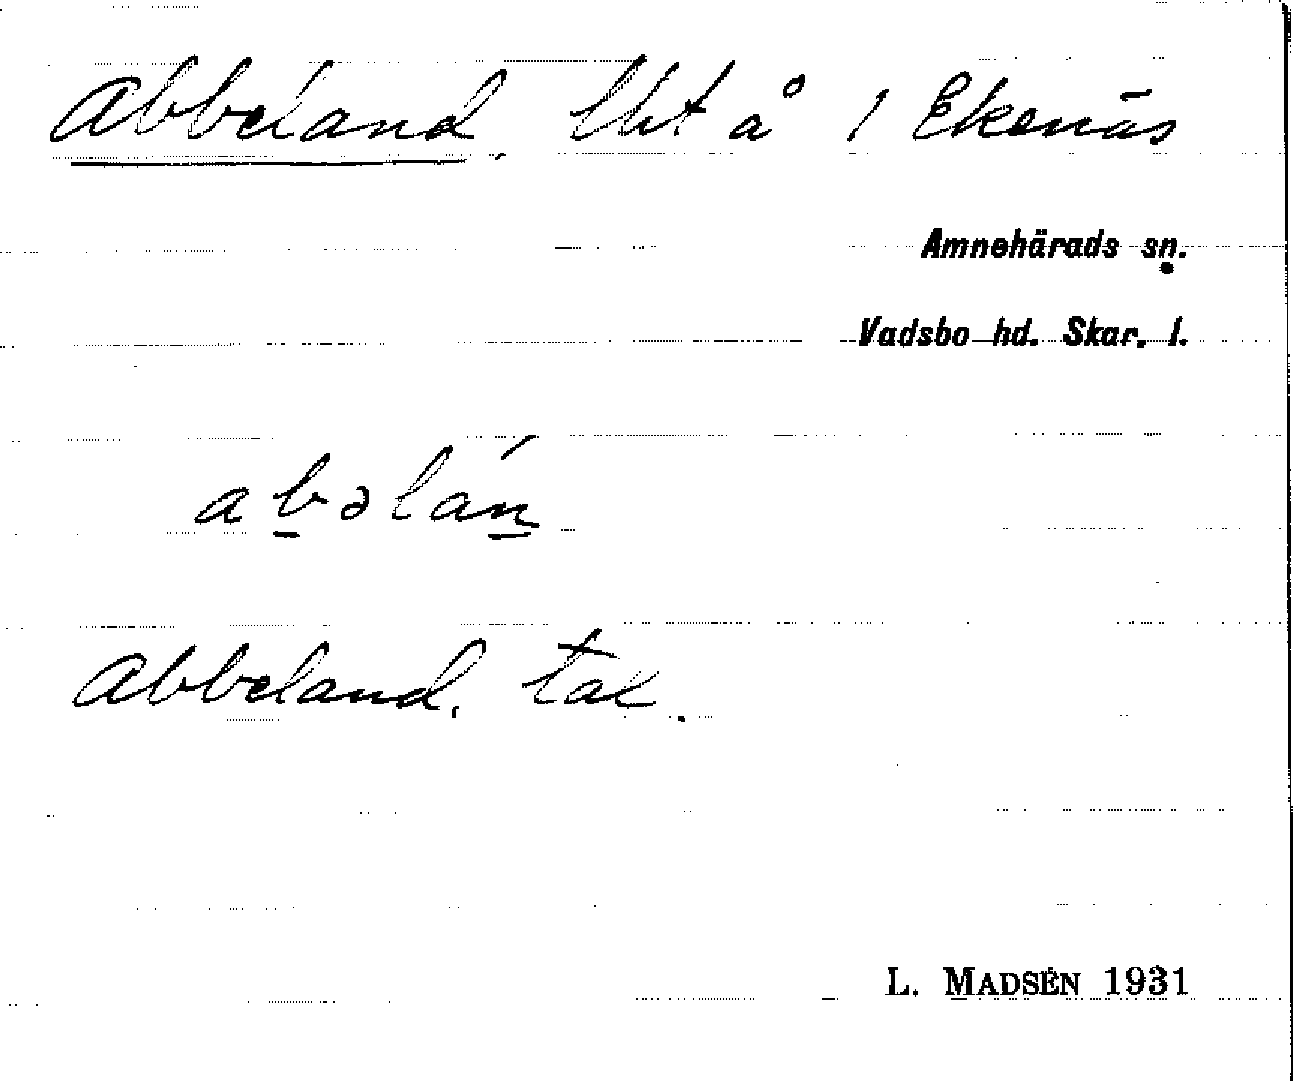 Abbeland, lht å 1 Ekenäs
Amnehärads sn.
Vadsbo hd. Skar. l.
abəlán
Abbeland, tal.
L. MADSÉN 1931